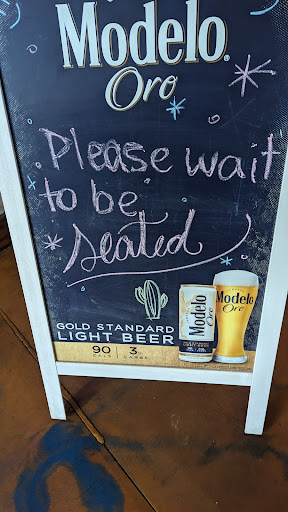 Modelo
Oro
Please wait
to be
seated
GOLD STANDARD
LIGHT BEER
90 CALS 3g CARBS
Modelo
Oro
Modelo
Oro